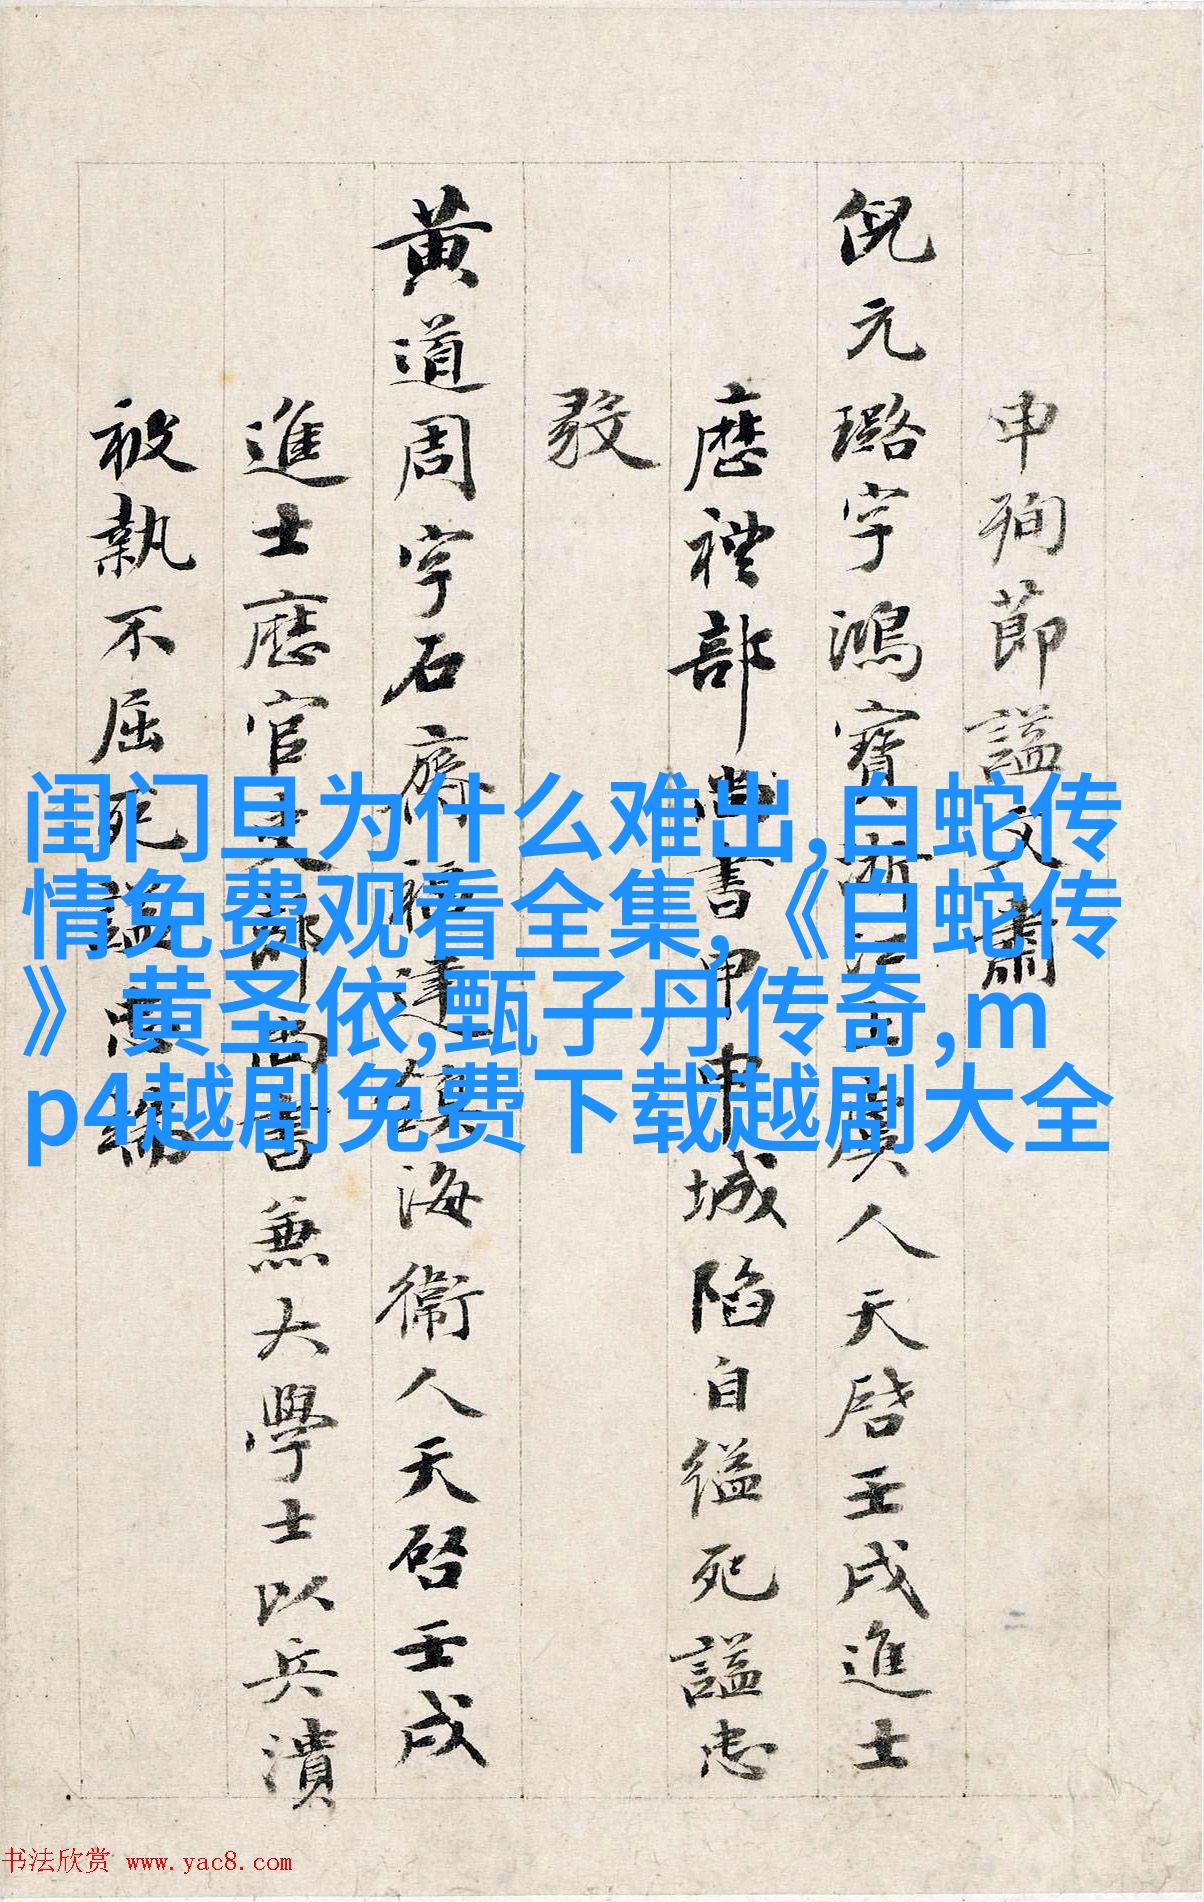 申殉節謚文肅
倪元璐字鴻寶浙江上虞人天啓壬戌進士
厯禮部尚書甲申城陷自縊死謚忠
黃道周字石齋福建鎮海衛人天啓壬戌
進士厯官吏部尚書兼大學士以兵潰
被執不屈死謚忠
闺门旦为什么难出,白蛇传
情免费观看全集,《白蛇传
》黄圣依,甄子丹传奇,m
p4越剧免费下载越剧大全
书法欣赏 www.yac8.com